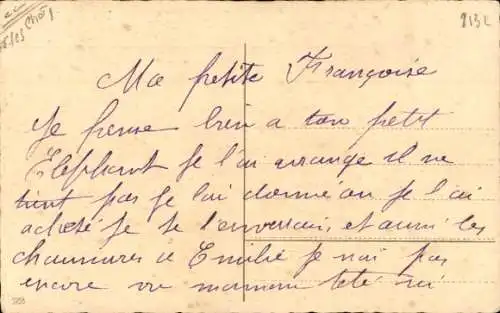 213L
Ma petite Françoise
Je pense bien a ton petit
Elephant je l'ai arrange il ne
tient pas je lai donné ou je l'ai
acheté je te l'enverrai, et aussi les
chaussures de Emilie je nai pas
encore vu maman tété